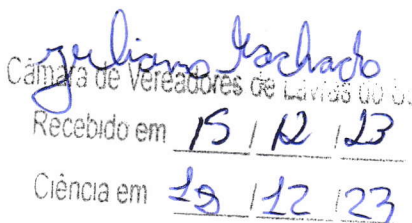 Juliano Machado
Câmara de Vereadores de Lavras do
Recebido em 15 / 12 / 23
Ciência em 19 / 12 / 23